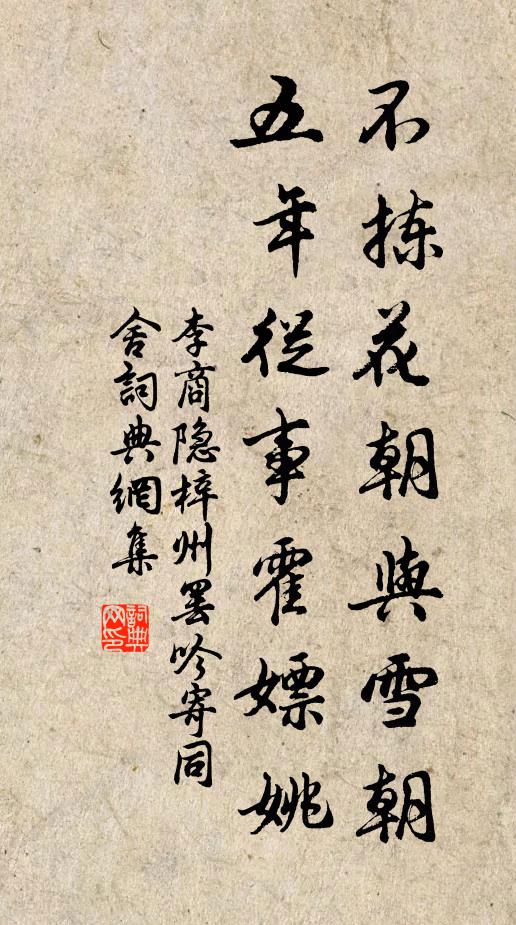 不拣花朝與雪朝
五年從事霍嫖姚
李商隐梓州罢吟寄同
舍詞典網集
詞典网印